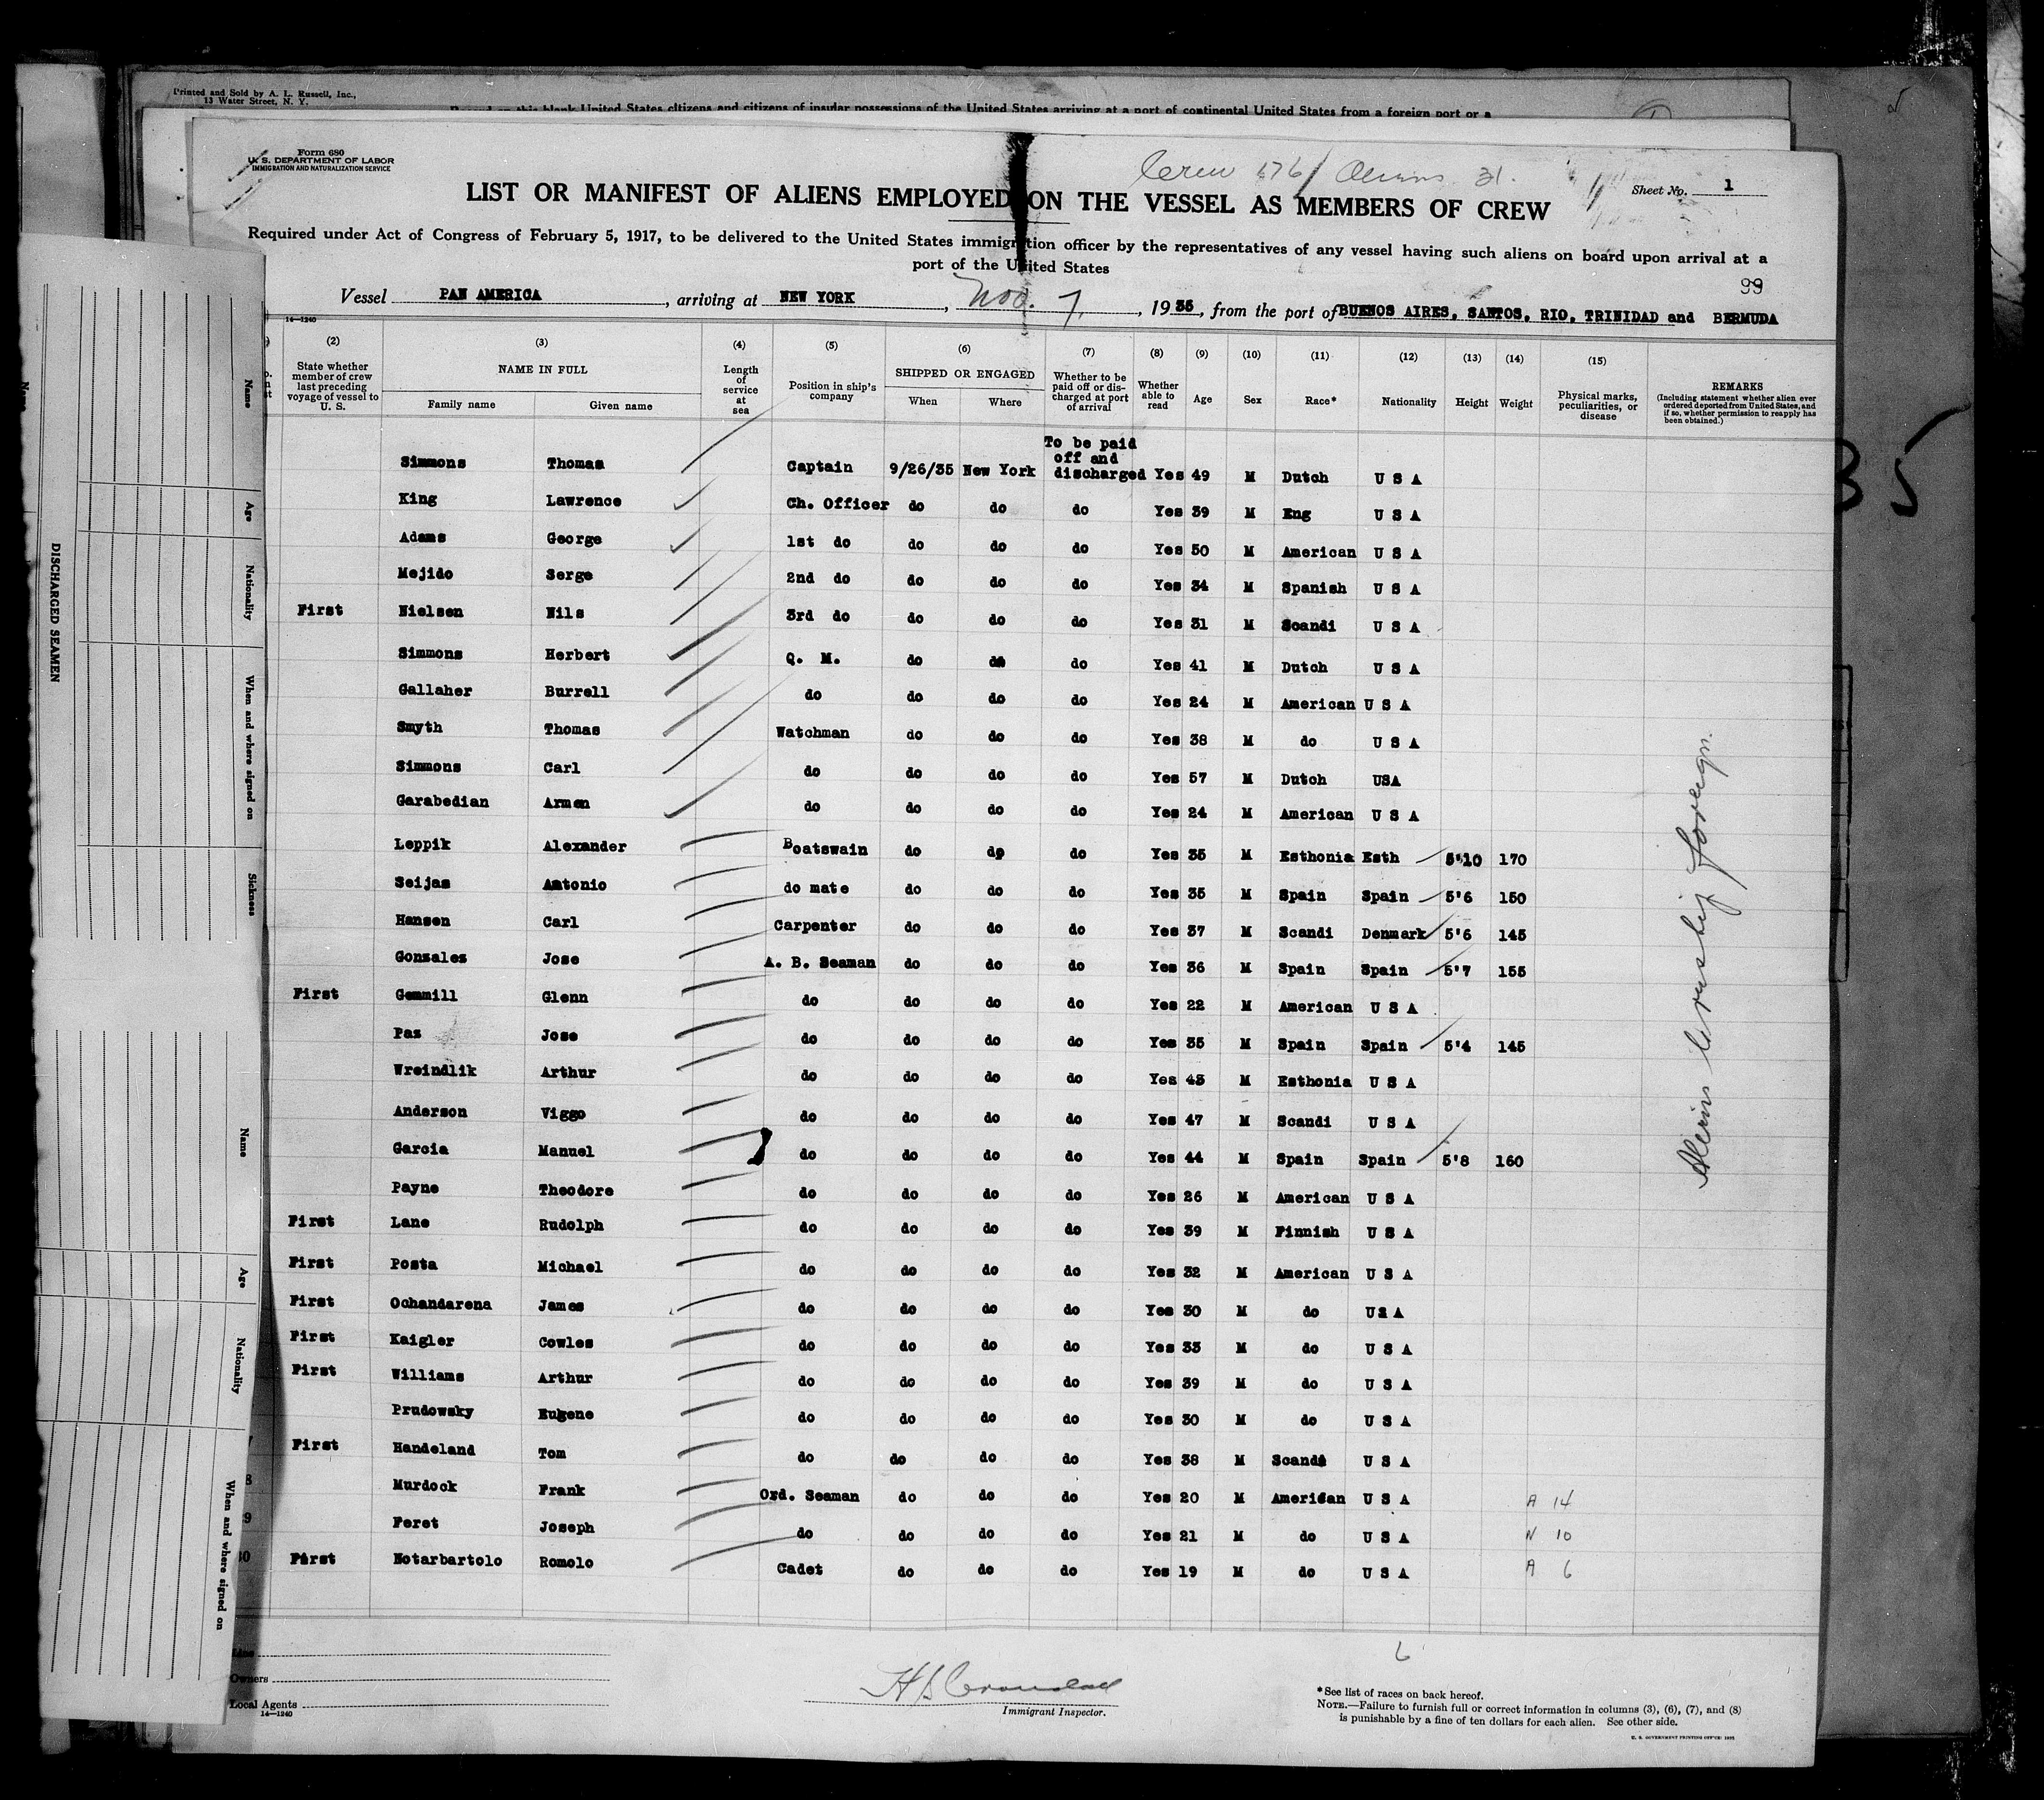 Printed and Sold by A. L. Russell, Inc.,
13 Water Street, N. Y.
on this blank United States citizens and citizens of insular possessions of the United States arriving at a port of continental United States from a foreign port or a
Form 680
U. S. DEPARTMENT OF LABOR
IMMIGRATION AND NATURALIZATION SERVICE
Crew 176 / Aliens 31.
Sheet No. 1
LIST OR MANIFEST OF ALIENS EMPLOYED ON THE VESSEL AS MEMBERS OF CREW
Required under Act of Congress of February 5, 1917, to be delivered to the United States immigration officer by the representatives of any vessel having such aliens on board upon arrival at a
port of the United States
99
Vessel PAN AMERICA, arriving at NEW YORK, Nov. 7, 1935, from the port of BUENOS AIRES, SANTOS, RIO, TRINIDAD and BERMUDA
14—1240
(2) (3) (4) (5) (6) (7) (8) (9) (10) (11) (12) (13) (14) (15)
State whether member of crew last preceding voyage of vessel to U. S.
NAME IN FULL
Family name Given name
Length of service at sea
Position in ship's company
SHIPPED OR ENGAGED
When Where
Whether to be paid off or discharged at port of arrival
Whether able to read
Age Sex Race* Nationality Height Weight
Physical marks, peculiarities, or disease
REMARKS
(Including statement whether alien ever ordered deported from United States, and if so, whether permission to reapply has been obtained.)
To be paid
off and
Simmons Thomas Captain 9/26/35 New York discharged Yes 49 M Dutch U S A
King Lawrence Ch. Officer do do do Yes 39 M Eng U S A
Adams George 1st do do do do Yes 50 M American U S A
Mejido Serge 2nd do do do do Yes 34 M Spanish U S A
First Nielsen Nils 3rd do do do do Yes 31 M Scandi U S A
Simmons Herbert Q. M. do do do Yes 41 M Dutch U S A
Gallaher Burrell do do do do Yes 24 M American U S A
Smyth Thomas Watchman do do do Yes 38 M do U S A
Simmons Carl do do do do Yes 57 M Dutch USA
Garabedian Armen do do do do Yes 24 M American U S A
Leppik Alexander Boatswain do do do Yes 35 M Esthonia Esth 5'10 170
Seijas Antonio do mate do do do Yes 35 M Spain Spain 5'6 150
Hansen Carl Carpenter do do do Yes 37 M Scandi Denmark 5'6 145
Gonzales Jose A. B. Seaman do do do Yes 36 M Spain Spain 5'7 155
First Gemmill Glenn do do do do Yes 22 M American U S A
Paz Jose do do do do Yes 35 M Spain Spain 5'4 145
Wreindlik Arthur do do do do Yes 43 M Esthonia U S A
Anderson Viggo do do do do Yes 47 M Scandi U S A
Garcia Manuel do do do do Yes 44 M Spain Spain 5'8 160
Payne Theodore do do do do Yes 26 M American U S A
First Lane Rudolph do do do do Yes 39 M Finnish U S A
First Posta Michael do do do do Yes 32 M American U S A
First Ochandarena James do do do do Yes 30 M do U S A
First Kaigler Cowles do do do do Yes 33 M do U S A
First Williams Arthur do do do do Yes 39 M do U S A
Prudowsky Eugene do do do do Yes 30 M do U S A
First Handeland Tom do do do do Yes 38 M Scandi U S A
Murdock Frank Ord. Seaman do do do Yes 20 M American U S A A 14
Feret Joseph do do do do Yes 21 M do U S A N 10
First Notarbartolo Romolo Cadet do do do Yes 19 M do U S A A 6
6
Owners
Local Agents
14—1240
Immigrant Inspector.
*See list of races on back hereof.
NOTE.—Failure to furnish full or correct information in columns (3), (6), (7), and (8)
is punishable by a fine of ten dollars for each alien. See other side.
U. S. GOVERNMENT PRINTING OFFICE: 1932
foreign.
35
DISCHARGED SEAMEN
Name
Age
Nationality
When and where signed on
Sickness
Name
Age
Nationality
When and where signed on